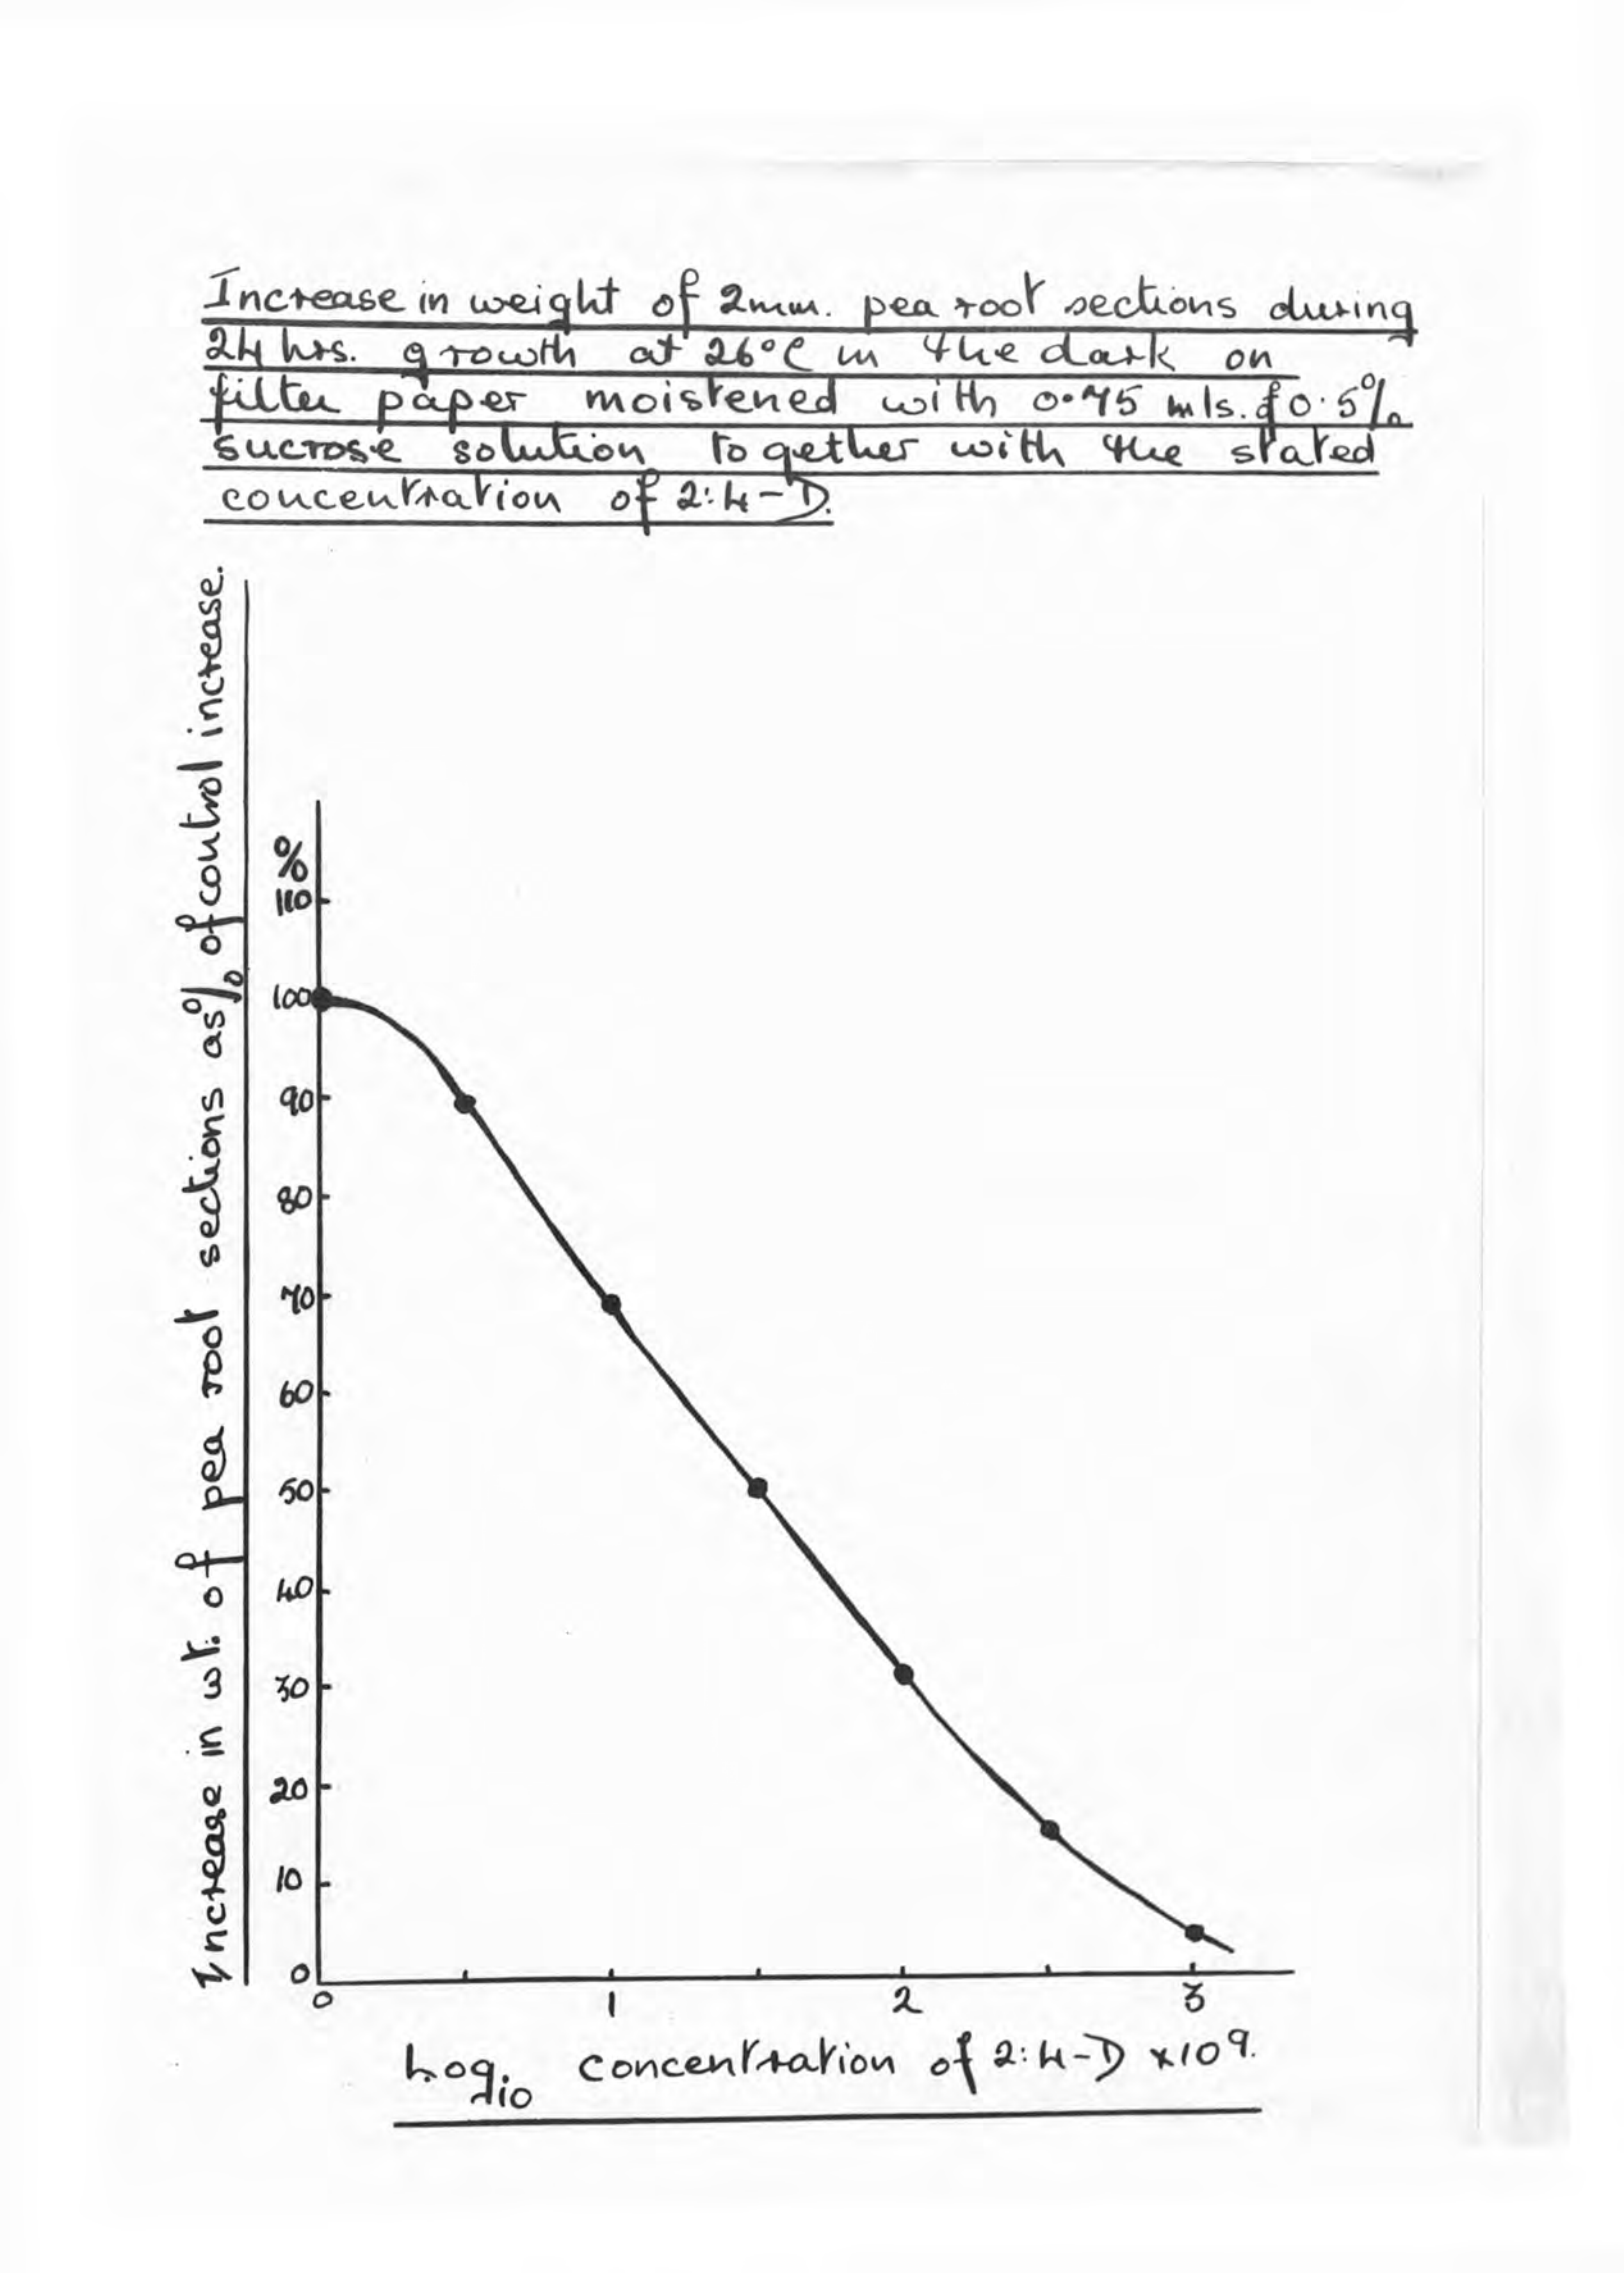 Increase in weight of 2mm. pea root sections during
24 hrs. growth at 26°C in the dark on
filter paper moistened with 0.75 mls. of 0.5%
sucrose solution together with the stated
concentration of 2:4-D.
Increase in wt. of pea root sections as % of control increase.
%
110
100
90
80
70
60
50
40
30
20
10
0
0 1 2 3
Log10 concentration of 2:4-D x10⁹.